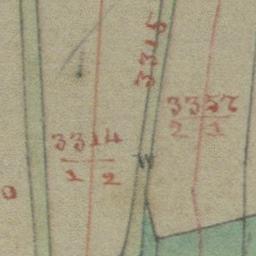 3315
3357
2 1
3314
1 2